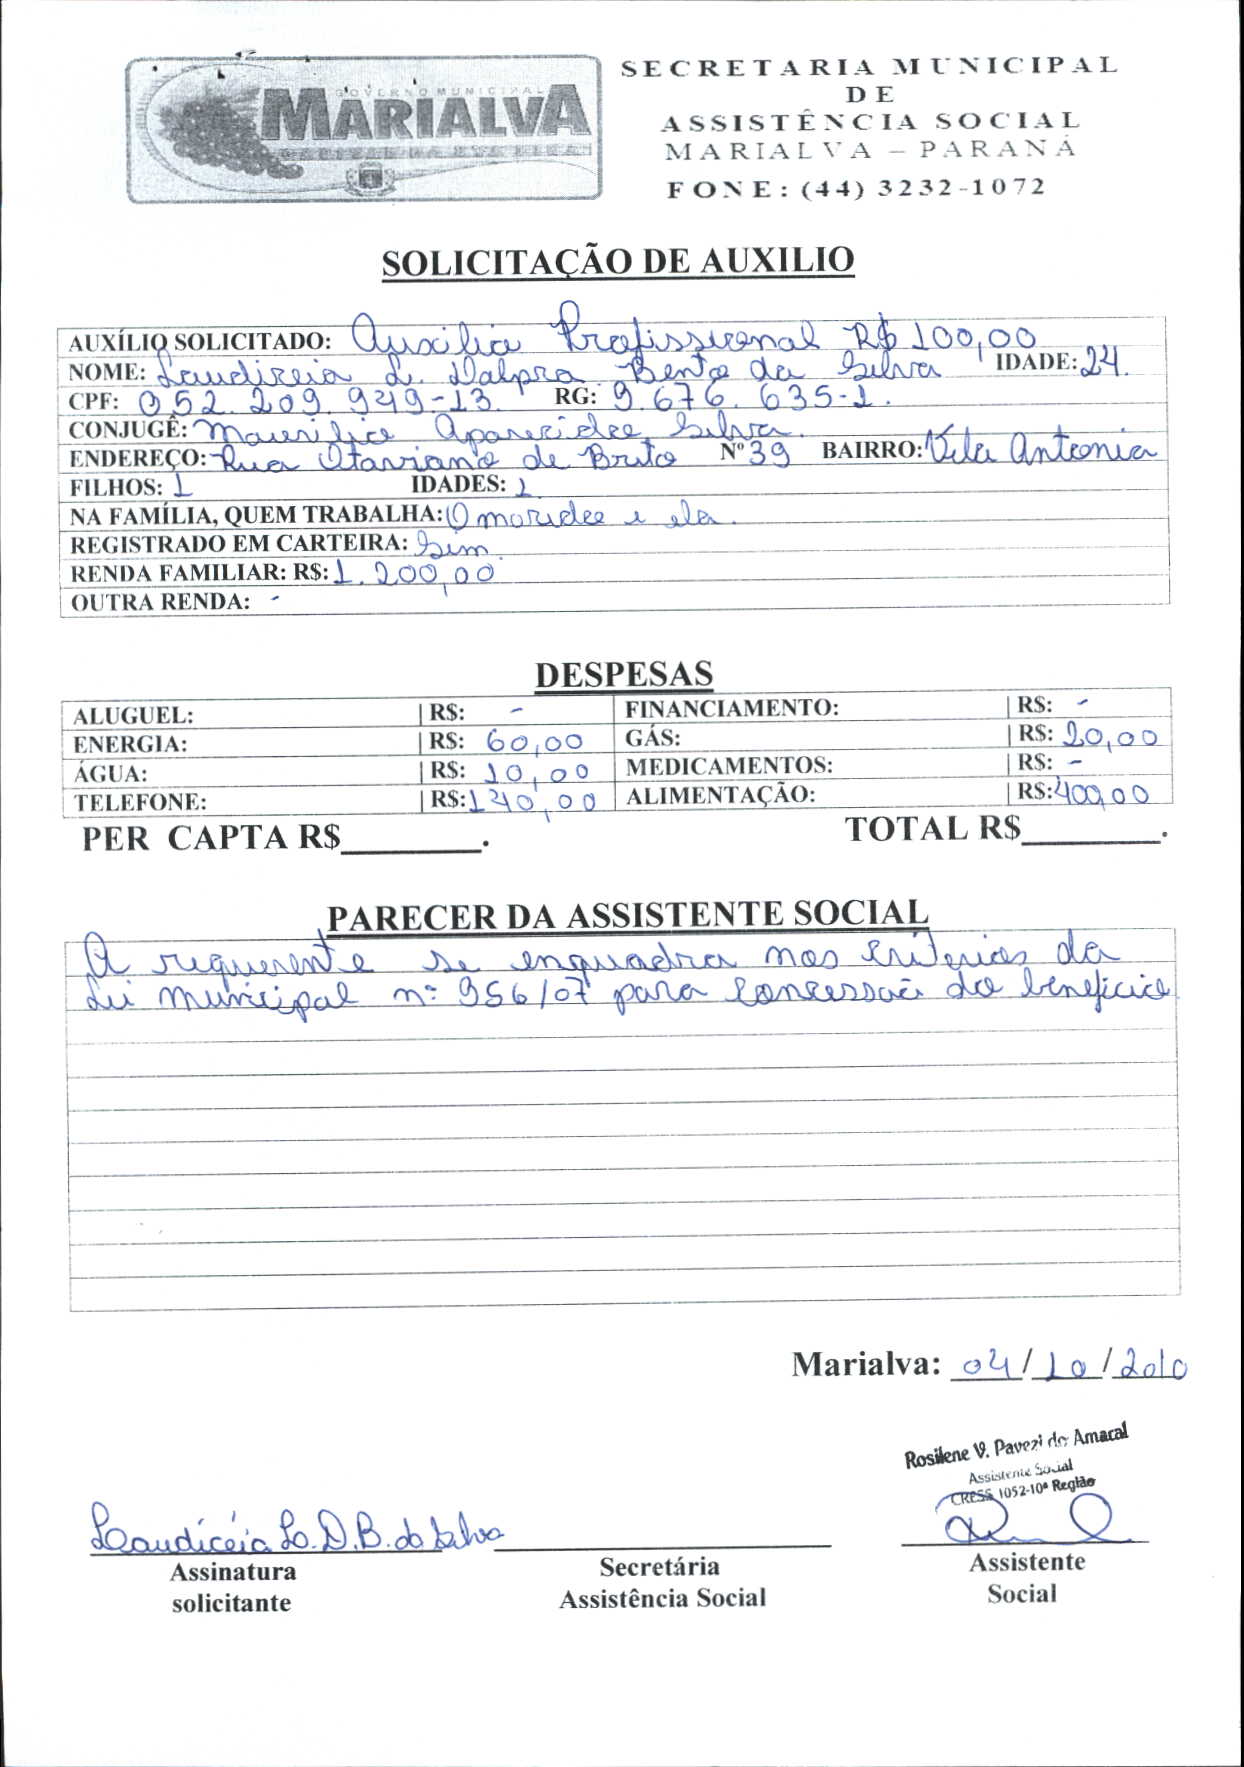 GOVERNO MUNICIPAL
MARIALVA
CAPITAL DA UVA FINA
SECRETARIA MUNICIPAL
DE
ASSISTÊNCIA SOCIAL
MARIALVA – PARANÁ
FONE: (44) 3232-1072
SOLICITAÇÃO DE AUXILIO
AUXÍLIO SOLICITADO: Auxilio Profissional R$ 100,00
NOME: Laudiceia L. Dalpra Bento da Silva IDADE: 24.
CPF: 052.209.949-13. RG: 9.676.635-1.
CONJUGÊ: Maurilio Aparecido Silva.
ENDEREÇO: Rua Otaviano de Brito Nº 39 BAIRRO: Vila Antonia
FILHOS: 1 IDADES: 1
NA FAMÍLIA, QUEM TRABALHA: O marido e ela.
REGISTRADO EM CARTEIRA: Sim.
RENDA FAMILIAR: R$: 1.200,00
OUTRA RENDA: -
DESPESAS
ALUGUEL: | R$: - FINANCIAMENTO: | R$: -
ENERGIA: | R$: 60,00 GÁS: | R$: 20,00
ÁGUA: | R$: 10,00 MEDICAMENTOS: | R$: -
TELEFONE: | R$: 140,00 ALIMENTAÇÃO: | R$: 400,00
PER CAPTA R$________. TOTAL R$________.
PARECER DA ASSISTENTE SOCIAL
A requerente se enquadra nos criterios da
Lei Municipal nº 956/07 para concessão do beneficio
Marialva: 04/10/2010
Rosilene V. Pavezi do Amaral
Assistente Social
CRESS 1052-10ª Região
Laudicéia L. D. B. da Silva
Assinatura
solicitante
Secretária
Assistência Social
Assistente
Social